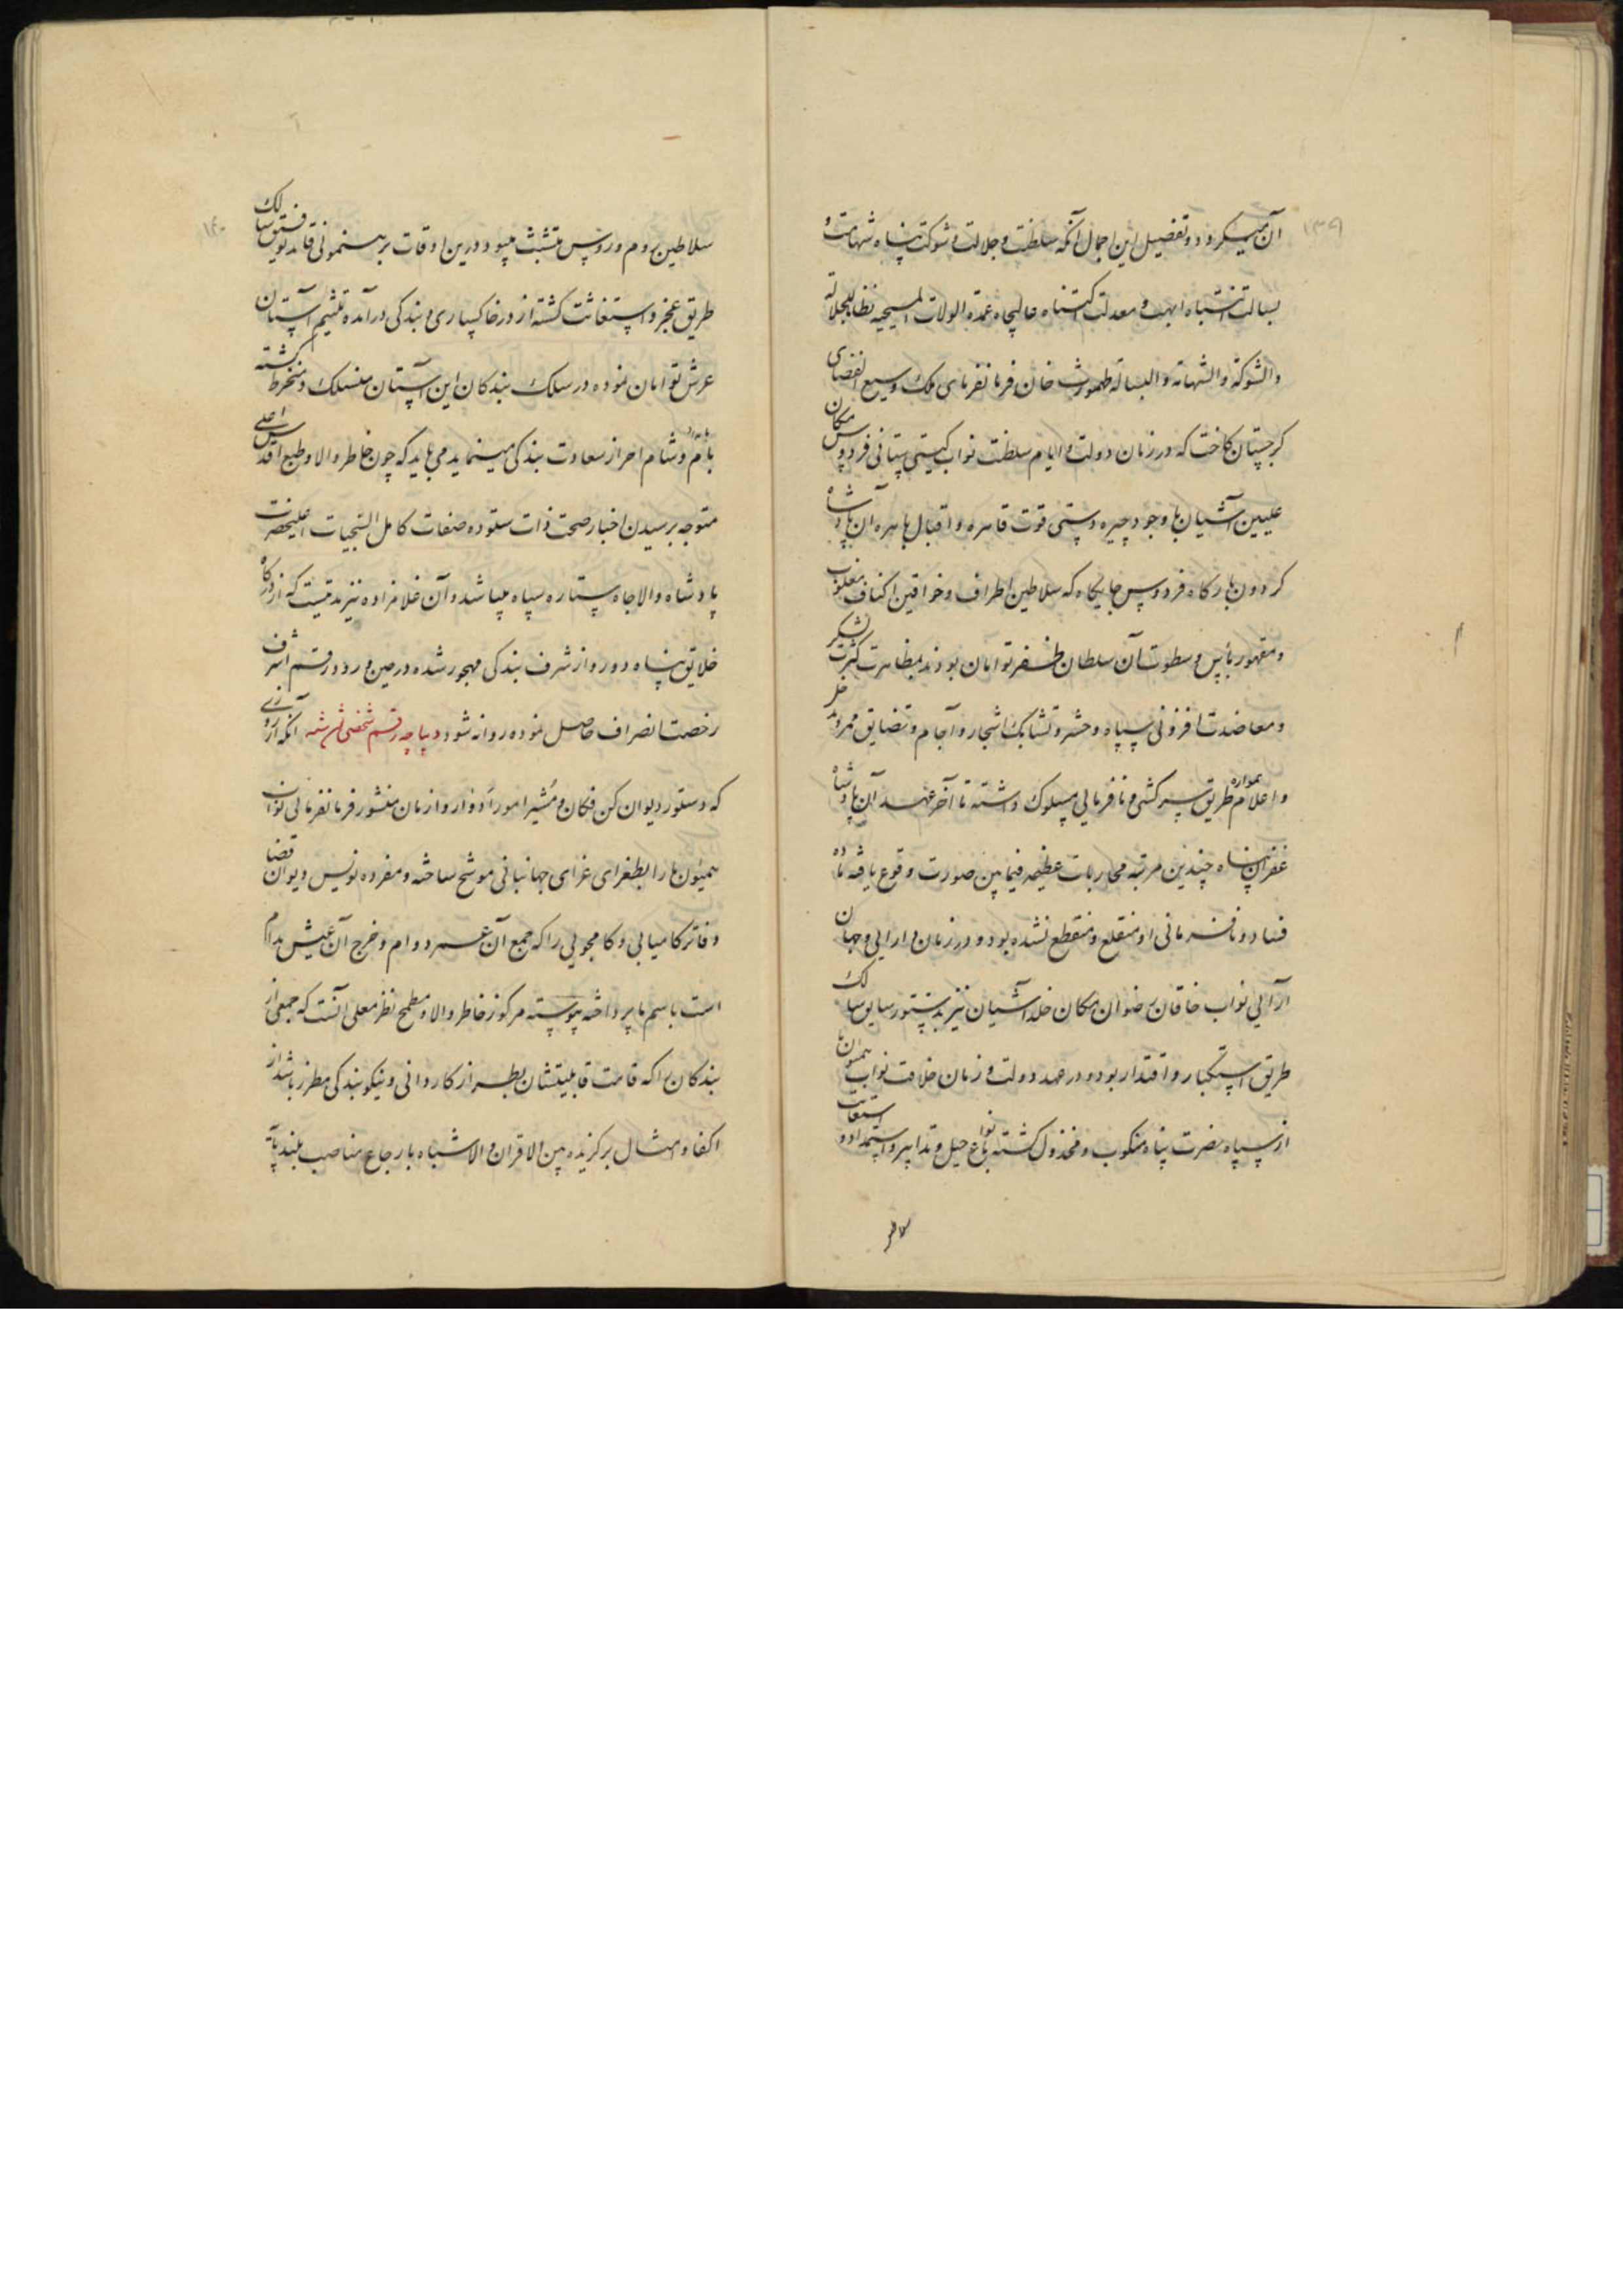 ۱۳۹
آن میگردد و تفصیل این اجمال آنکه سلطنت و جلالت و شوکت پناه شهامت و
بسالت انتباه ابهت و معدلت اکتناه عالیجاه عمدة الولات المسیحیه نظاما للجلالة
والشوکة والشهامة والبسالة طهمورث خان فرمانفرمای ملک وسیع الفضای
گرجستان کاخت که در زمان دولت و ایام سلطنت نواب گیتی ستانی فردوس مکان
علیین آشیان با وجود چیره دستی قوت قاهره و اقبال باهره آن پادشاه
گردون بارگاه فردوس جایگاه که سلاطین اطراف و خواقین اکناف مغلوب
و مقهور بأس و سطوت آن سلطان ظفر توامان بودند بمظاهرت کثرت لشکر
و معاضدت افزونی سپاه و حشر و تشابک اشجار و آجام و تضایق ممر
و اعلام همواره طریق سرکشی و نافرمانی مسلوک داشته تا آخر عهد آن پادشاه
غفران پناه چندین مرتبه محاربات عظیمه فیمابین صورت وقوع یافته ماده
فساد و نافرمانی او منقلع و منقطع نشده بود و در زمان دارایی و جهان
آرایی نواب خاقان رضوان مکان خلد آشیان نیز بدستور سابق سالک
طریق استکبار و اقتدار بوده و در عهد دولت و زمان خلافت نواب همیون ما
از سپاه نصرت پناه منکوب و مخذول گشته بانواع حیل و تدابیر و استمداد و استعانت
سلاطین
۱۴۰
سلاطین روم و روس متشبث میبود درین اوقات برهنمونی قاید توفیق سالک
طریق عجز و استغاثت گشته از در خاکساری و بندگی درآمده تلثیم آستان
عرش توامان نموده در سلک بندگان این آستان منسلک و منخرط گشته
بامداد و شام احراز سعادت بندگی مینماید می باید که چون خاطر والا و طبع اقدس اعلی
متوجه رسیدن اخبار صحت ذات ستوده صفات کامل التحیات اعلیحضرت
پادشاه والاجاه ستاره سپاه میباشد و آن غلامزاده نیز مدتیست که از درگاه
خلایق پناه دور و از شرف بندگی مهجور شده در حین ورود رقم اشرف
رخصت انصراف حاصل نموده روانه شود دیباچه رقم شخصی آنکه از روزی
که دستور دیوان کن فکان و مشیر امور ادوار و ازمان منشور فرمانفرمائی نواب
همیون ما را بطغرای غرای جهانبانی موشح ساخته و مفرده نویس دیوان قضا
دفاتر کامیابی و کامجویی را که جمع آن عمر دوام و خرج آن عیش مدام
است باسم ما پرداخته پیوسته مرکوز خاطر والا و مطمح نظر معلی آنست که جمعی از
بندگان را که قامت قابلیتشان بطراز کاردانی و نیکو بندگی مطرز باشد از
اکفا و امثال برگزیده بین الاقران و الاشباه بارجاع مناصب بلند پایه